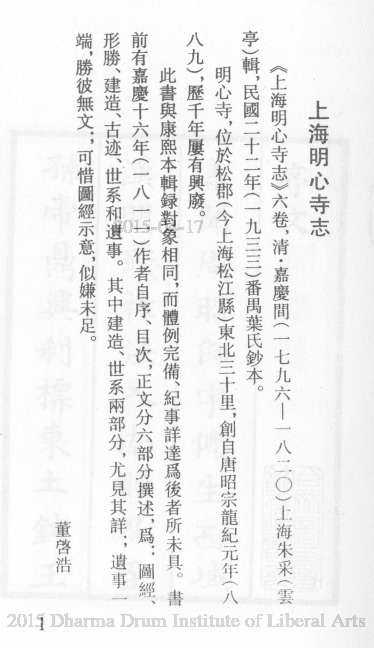 上海明心寺志
《上海明心寺志》六卷，清·嘉慶間(一七九六—一八二〇)上海朱采(雲
亭)輯，民國二十二年(一九三三)番禺葉氏鈔本。
明心寺，位於松郡(今上海松江縣)東北三十里，創自唐昭宗龍紀元年(八
八九)，歷千年屢有興廢。
此書與康熙本輯録對象相同，而體例完備、紀事詳達爲後者所未具。書
前有嘉慶十六年(一八一一)作者自序、目次，正文分六部分撰述，爲：圖經、
形勝、建造、古迹、世系和遺事。其中建造、世系兩部分，尤見其詳；遺事一
端，勝彼無文；可惜圖經示意，似嫌未足。
董啓浩
1
2015 Dharma Drum Institute of Liberal Arts